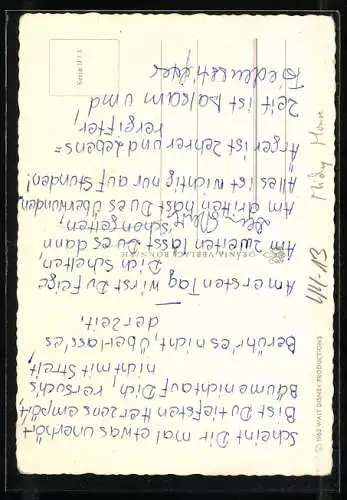 Scheint Dir mal etwas unerhört
Bist Du tiefsten Herzens empört,
Bäume nicht auf Dich, versuch's
nicht mit Streit,
Berühr es nicht, überlass es
der Zeit,
Am ersten Tag wirst Du feige
Dich schelten,
Am zweiten lässt Du es dann
schon gelten,
Am dritten hast Du es überwunden,
Alles ist wichtig nur auf Stunden!
Ärger ist Zehrer und Lebens=
vergifter
Zeit ist Balsam und
Friedensstifter
Serie II / 5
ORANIA-VERLAG
© 1952 WALT DISNEY PRODUCTIONS
44-13
Mouse